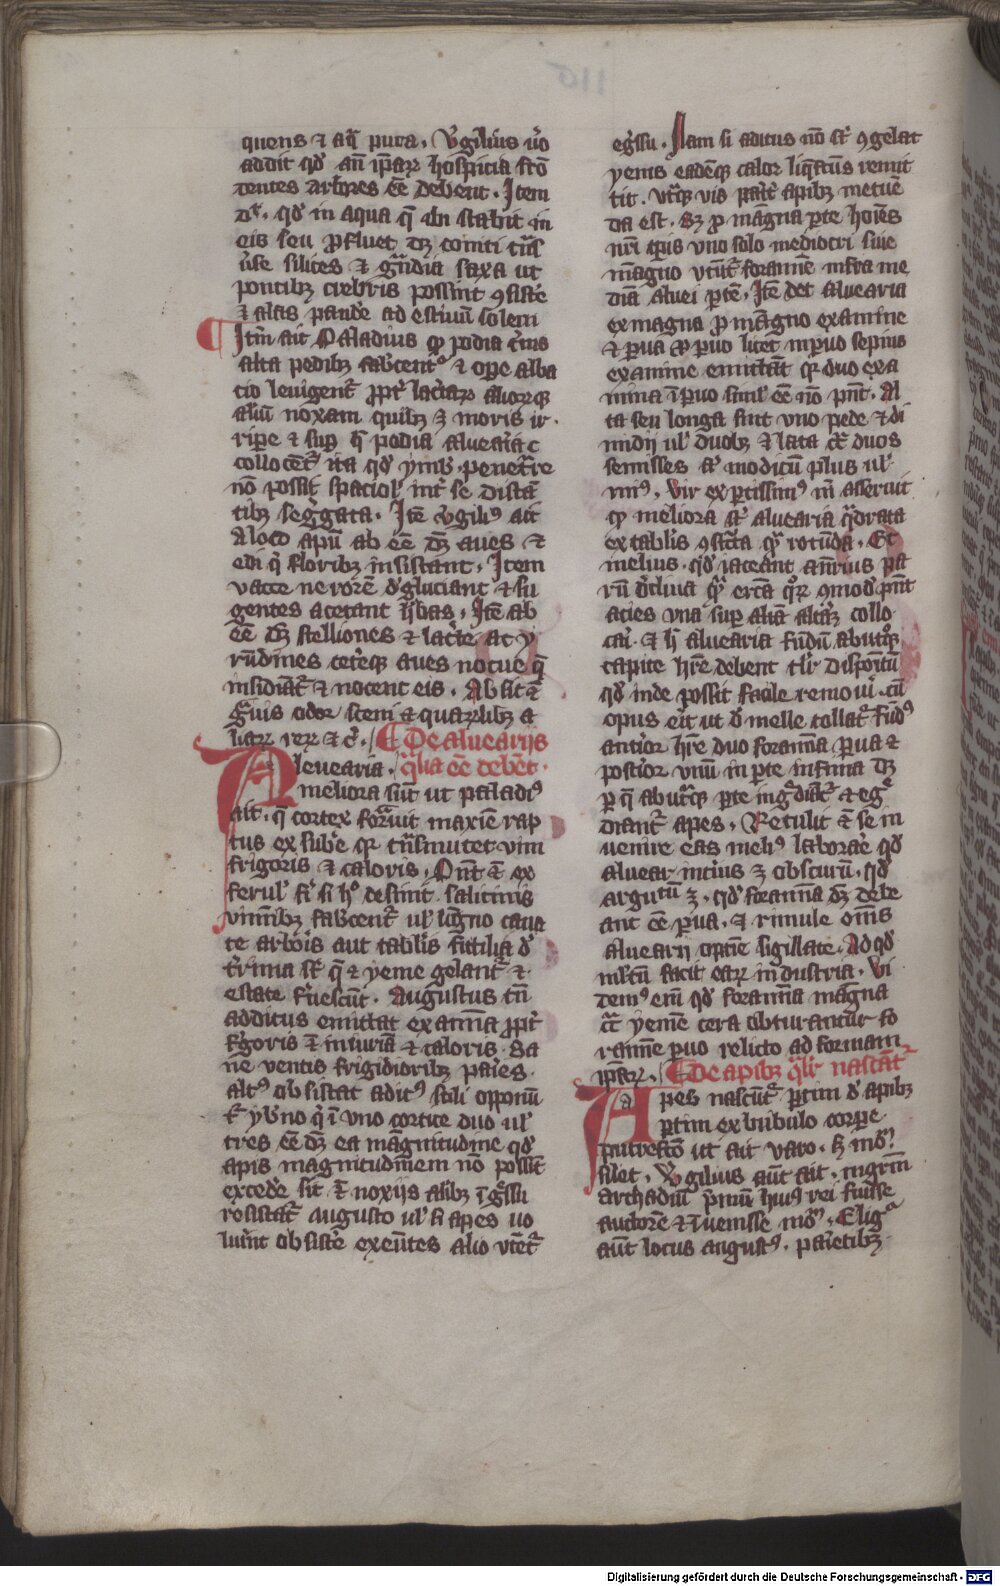 quens ⁊ aq̄ pura. Virgilius v̊o
addit qd̛ an̄ ip̄aꝝ hospicia sr̄o
dentes arbores ee̅ debent. Item
dr̄. qd̛ in aqua q̄ ibi stabit in
eis seu ꝓfluet dꝫ
ỻse silices ⁊ gn̄dia saxa ut
pontibꝫ crebris possint ꝯsiste̅
⁊ alas pande̅ ad estiuū solem
Itm̄ ait Paladius ꝙ podia
alta pedibꝫ fab̛cent᷑ ⁊ oꝑe alba
cio leuigent᷑ ꝓpt̛ lac̛taꝝ alioꝝqꝫ
aliū noxam quibꝫ ꝫ moris ir
riꝑe ⁊ suꝑ q̄ podia aluearia
collocēt᷑ ita qd̛ ymb̛ penet̛re
nō possit spaciol̛ int̛ se distā
tibꝫ seg̛gata. Itē v̛giliꝰ ait
A loco apū ab ee̅ dꝫ aues ⁊
edi q̄ floribꝫ insistant. Item
vacce ne rorē d̛gluciant ⁊ su
gentes acetant h̛bas. Itē ab
ee̅ dꝫ stelliones ⁊ lac̛te ac y
rūdines cet̛eqꝫ aues nocue q̄
insidiāt᷑ ⁊ nocent eis. Absit ē
g̛uis odor ceni ⁊ quaꝝlibꝫ a
liaꝝ reꝝ ⁊ c̛. De aluearijs
Aleuearia. q̄lia ee̅ debēt.
meliora sūt ut paladiꝰ
ait. q̄ cortex for̄auit maxīe rap
tus ex sub̛e qꝛ tn̄smutet vim
frigoris ⁊ caloris. Pn̄t ē ex
ferul̛ fi̛ si hͦ desint salicinis
viminibꝫ fab̛cent᷑ ul̛ lig̛no caua
te arbor̛is aut tabl̛is fictilia d̛
t̛rima st̛ q̄ ⁊ yeme gelant᷑ ⁊
estate f̛uescūt. Augustus tn̄
additus emittat exam̄ia ꝓpt̛
f̛goris ē iniuriā ⁊ caloris. Sa
ne ventis frigidioribꝫ paries
altꝰ obsistat aditꝰ soli opponū
t̛ yb̛no q̛ ī vno cortice duo ul̛
tres ee̅ dꝫ ea magnitudine qd̛
apis magnitudinem nō possīt
excede̅ sit ē noxijs alibꝫ īg̛ssu
resistat᷑ augusto ul̛ si apes uo
luīnt obsiste̅ exeūtes alio vtēt᷑
eg̛ssu. Nam si aditus nō st̛ ꝯgelat
yems eadēqꝫ calor liq̛factus remit
tit. vt̛qꝫ vis par̛t apibꝫ metuē
da est. Sꝫ ꝓ magna ꝑte hoīes
nr̄i ip̄is vno solo mediocri siue
magno vtūt᷑ foramīe infra me
diā aluei ꝑtē. Itē det aluearia
ex magna ꝓ magno examine
⁊ ꝑua ꝓ ꝑuo licet in ꝑuo sepius
examine emittāt qꝛ duo exa
mina ī ꝑuo simul̛ ee̅ nō pn̄t. Al
ta seu longa sint vno pede ⁊ di
midij ul̛ duobꝫ ⁊ lata c̛t̛ duos
semisses st̛ modicū plus ul̛
minꝰ. Vir exꝑtissimꝰ m̄ asseruit
ꝙ meliora st̛ aluearia q̛drata
ex tablis ꝯst̛cta qꝛ rotūda. Et
melius. qd̛ iaceant ant̛rius pa
rū d̛cliuia
acies vna suꝑ aliā altaꝝ collo
cari. ⁊ h̛ aluearia fūdū ab utͦqꝫ
capite hr̄e debent tl̛r dispoitū
qd̛ inde possit facile remoui. cū
opus eit ut d̛ melle tollat᷑ fūdꝰ
antior hr̄e duo foramīa ꝑua ⁊
post̛ior vnū in ꝑte infima dꝫ
ꝑ q̄ ab ut̛qꝫ ꝑte ing̛diāt᷑ ⁊ eg̛
diant᷑ apes. Retulit ē se in
uenire eas meliꝰ laborae̅ qd̛
aluear interius ꝫ obscurū. qd̛
argutū ꝫ. qd̛ foramīa dꝫ debe
ant ee̅ ꝑua. ⁊ rimule om̄s
aluearij optīe sigillate. Ad qd̛
ml̛tū facit eaꝝ industria. Vi
demꝰ eni̅ qd̛ foramīa magna
c̛t̛ yemē cera obturantur fo
ramīe ꝑuo relicto ad formam
ip̄aꝝ. De apibꝫ q̛lr̛ nascāt᷑
Apes nascūt᷑ ꝑtim d̛ apibꝫ
ꝑtim ex bubulo corꝑe
putrefc̄o ut ait varo. h̛ modͫ
silet. Virgilius aūt ait. mgr̄m
archadiū p̛mū huiꝰ rei fuisse
auctorē ⁊ īuenisse modͫ. Elig᷑
aūt locus angustꝰ. parietibꝫ
Digitalisierung gefördert durch die Deutsche Forschungsgemeinschaft - DFG